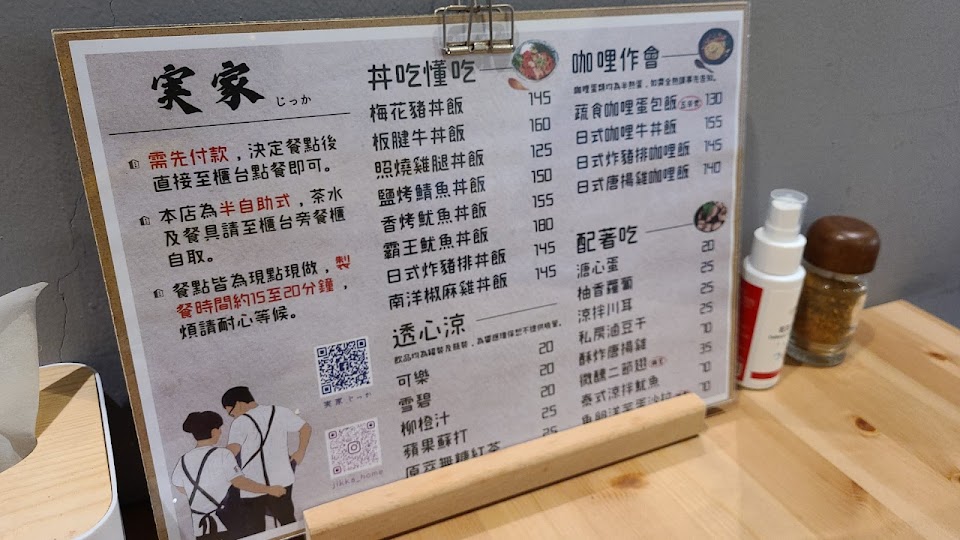 実家 じっか
需先付款，決定餐點後
直接至櫃台點餐即可。
本店為半自助式，茶水
及餐具請至櫃台旁餐櫃
自取。
餐點皆為現點現做，製
餐時間約15至20分鐘，
煩請耐心等候。
実家 じっか
jikka_home
丼吃懂吃
梅花豬丼飯 145
板腱牛丼飯 160
照燒雞腿丼飯 125
鹽烤鯖魚丼飯 150
香烤魷魚丼飯 155
霸王魷魚丼飯 180
日式炸豬排丼飯 145
南洋椒麻雞丼飯 145
透心涼
可樂 20
雪碧 20
柳橙汁 20
蘋果蘇打 25
原萃無糖紅茶 25
咖哩作會
咖哩蛋類均為半熟蛋，如需全熟請事先告知。
蔬食咖哩蛋包飯 130
日式咖哩牛丼飯 155
日式炸豬排咖哩飯 145
日式唐揚雞咖哩飯 140
配著吃
溏心蛋 20
柚香蘿蔔 25
涼拌川耳 25
私房滷豆干 25
酥炸唐揚雞 70
微醺二節翅 35
泰式涼拌魷魚 70